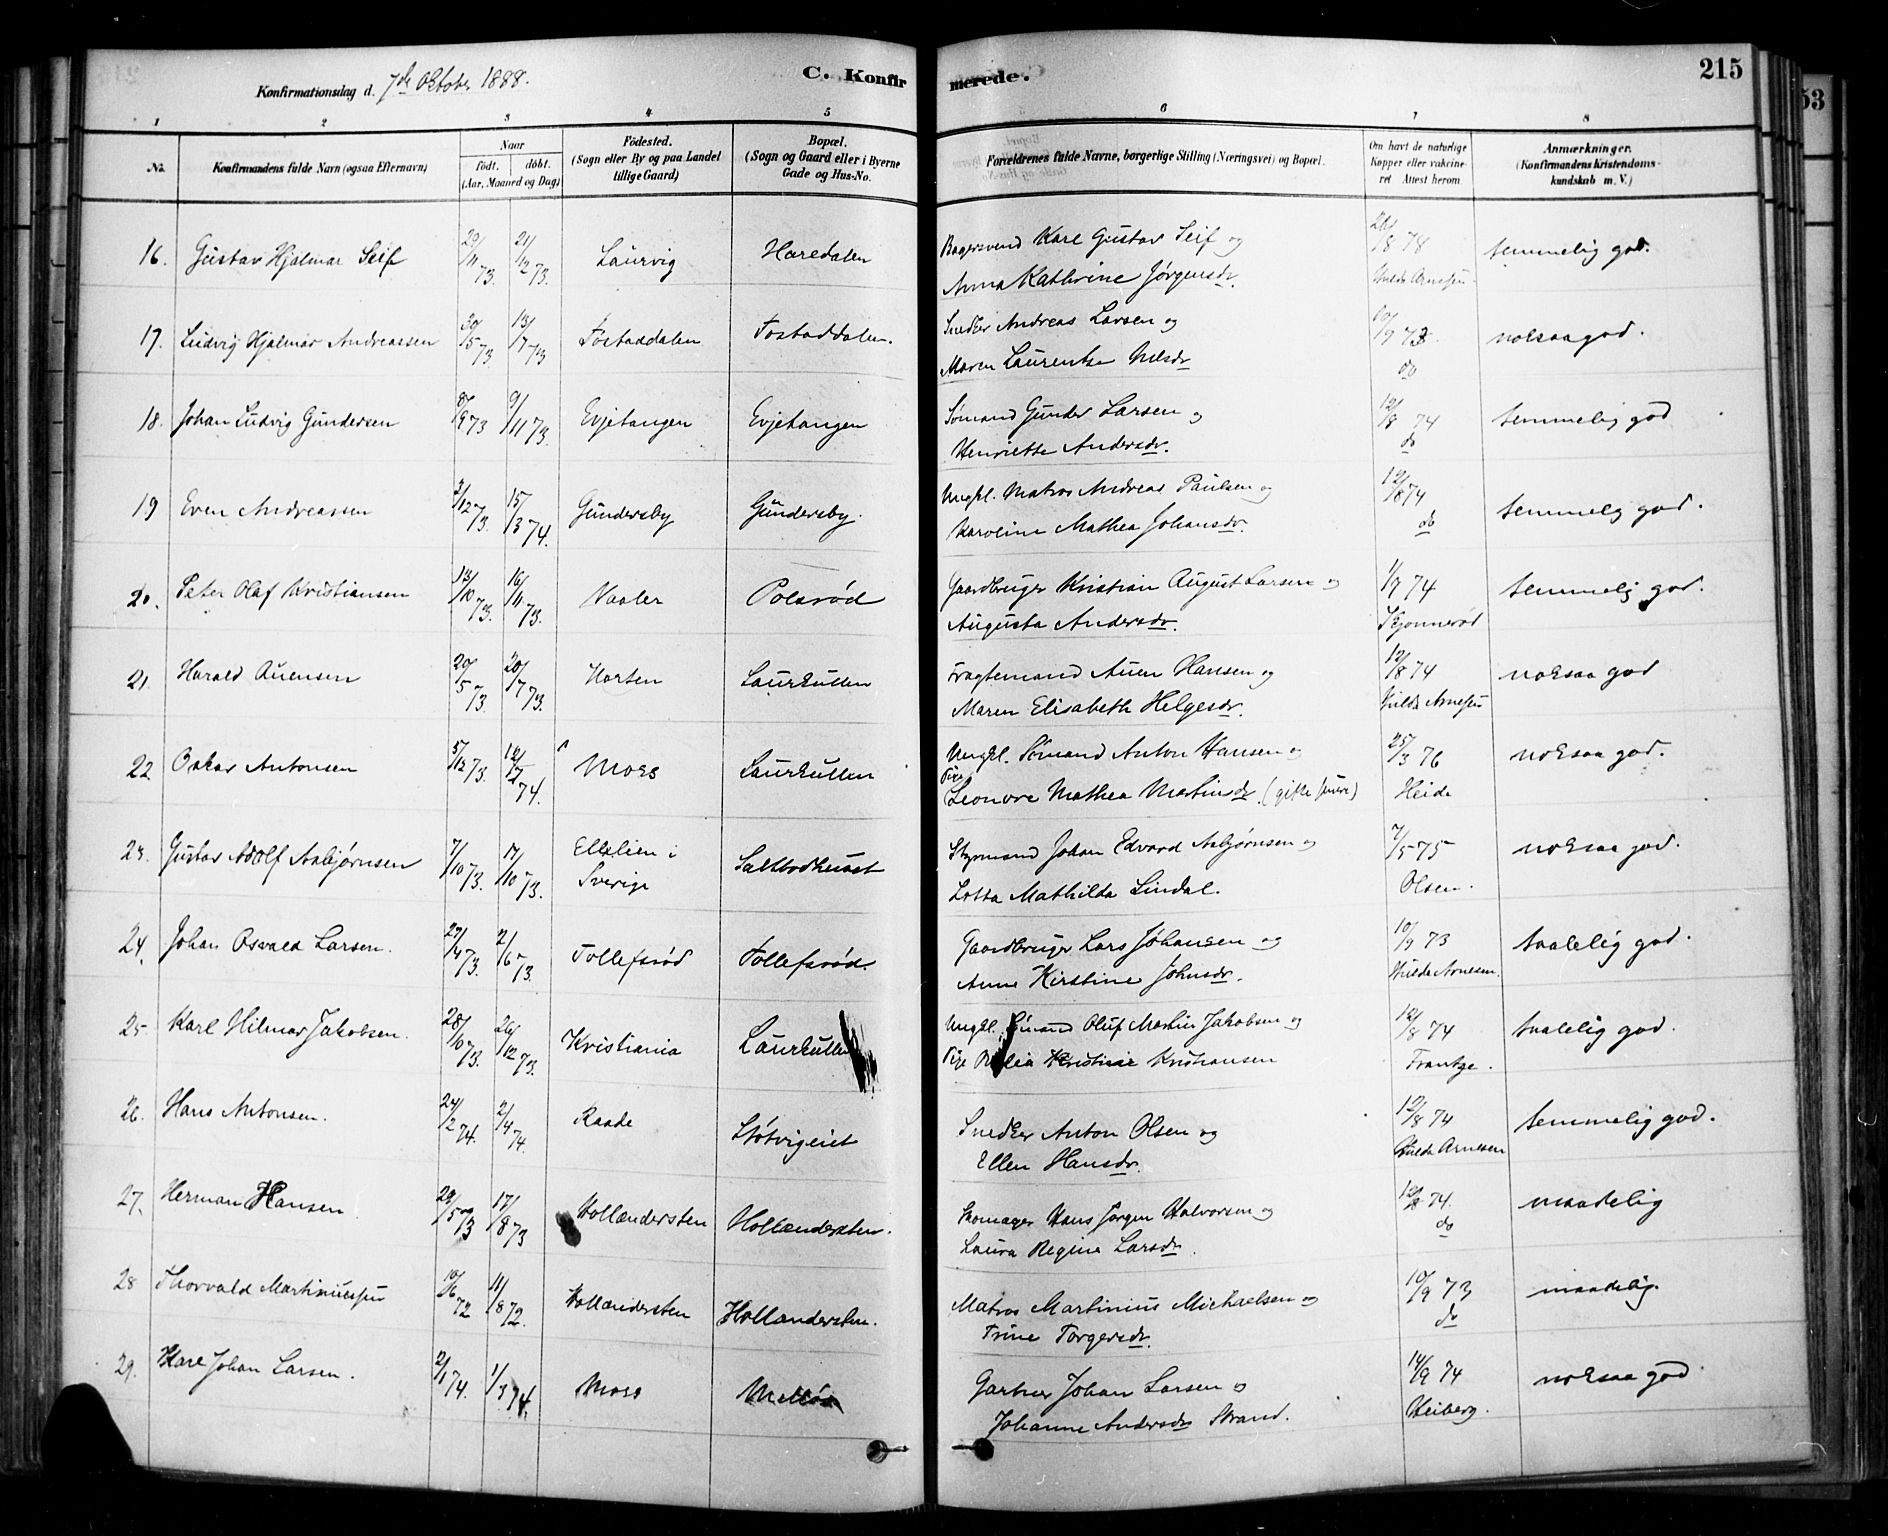 Konfirmationsdag d. 7de Oktober 1888.
C. Konfirmerede.
215
53
1 2 3 4 5 6 7 8
No.
Konfirmandens fulde Navn (ogsaa Efternavn)
Naar
født. døbt.
(Aar, Maaned og Dag)
Fødested.
(Sogn eller By og paa Landet
tillige Gaard)
Bopæl.
(Sogn og Gaard eller i Byerne
Gade og Hus-No.
Forældrenes fulde Navne, borgerlige Stilling (Næringsvei) og Bopæl.
Om havt de naturlige
Kopper eller vakcine-
ret Attest herom
Anmærkninger.
(Konfirmandens Kristendoms-
kundskab m. V.)
16. Gustav Hjalmar Seif 29/11 73. 21/12 73. Laurvig Haredalen Bagersvend Karl Gustav Seif og 26/8 78 temmelig god.
Anna Kathrine Jørgensdr. Hulda Arnesen
17. Ludvig Hjalmar Andreassen 30/5 73. 13/7 73 Tostaddalen Tostaddalen. Snedker Andreas Larsen og 10/9 73. noksaa god.
Maren Laurentse Nilsdr do
18. Johan Ludvig Gundersen 8/9 73 9/11 73. Evjetangen Evjetangen Sømand Gunder Larsen og 12/8 74 temmelig god
Henriette Andersdr. do
19 Even Andreassen 3/12 73. 15/3 74. Gundersby Gundersby. Ungkl. Matros Andreas Paulsen og 12/8 74 temmelig god.
Karoline Mathea Johansdr. do
20. Peter Olaf Kristiansen 13/10 73. 16/11 73. Vaaler Polsrød Gaardbruger Kristian August Larsen og 1/9 74 temmelig god.
Augusta Andersdr. Skjonnerød
21. Harald Auensen 20/5 73. 20/7 73. Horten Laurkullen Fragtemand Auen Hansen og 12/8 74 noksaa god
Maren Elisabeth Helgesdr. Hulda Arnesen
22 Oskar Antonsen 5/12 73. 12/7 74. Moss Laurkullen Ungkl. Sømand Anton Hansen og 25/3 76 noksaa god.
Pige Leonore Mathea Martinsdr. (gifte senere) Heide
23. Gustav Adolf Asbjørnsen 7/10 73. 17/10 73. Elleslien i Saltbodhuset Styrmand Johan Edvard Asbjørnsen og 7/5 75 noksaa god.
Sverige Lotta Mathilda Lindal. Olsen.
24. Johan Osvald Larsen. 29/4 73. 2/6 73. Tollefsrød Tollefsrød. Gaardbruger Lars Johansen og 10/9 73 taalelig god.
Anne Kirstine Johnsdr. Hulda Arnesen.
25 Karl Hilmar Jakobsen. 28/10 73. 26/12 73. Kristiania Laurkullen Ungkl. Sømand Oluf Martin Jakobsen og 12/8 74 taalelig god.
Pige Kristine Kristiansen Frantze.
26. Hans Antonsen. 24/2 74. 2/4 74. Raade Støtvigeiet Snedker Anton Olsen og 12/8 74 temmelig god.
Ellen Hansdr. Hulda Arnesen
27. Herman Hansen 29/5 73 17/8 73 Hollændersten Hollændersten. Skomager Hans Jørgen Halvorsen og 12/8 74. maadelig
Laura Regine Larsdr. do
28 Thorvald Martiniussen 10/6 72 11/8 72. Hollændersten Hollændersten. Matros Martinius Michaelsen og 10/9 73 maadelig.
Trine Torgersdr. do
29. Karl Johan Larsen. 2/1 74. 1/3 74. Moss Melløs Gartner Johan Larsen og 14/9 74 noksaa god
Johanne Andersdr Strand. Heiberg.